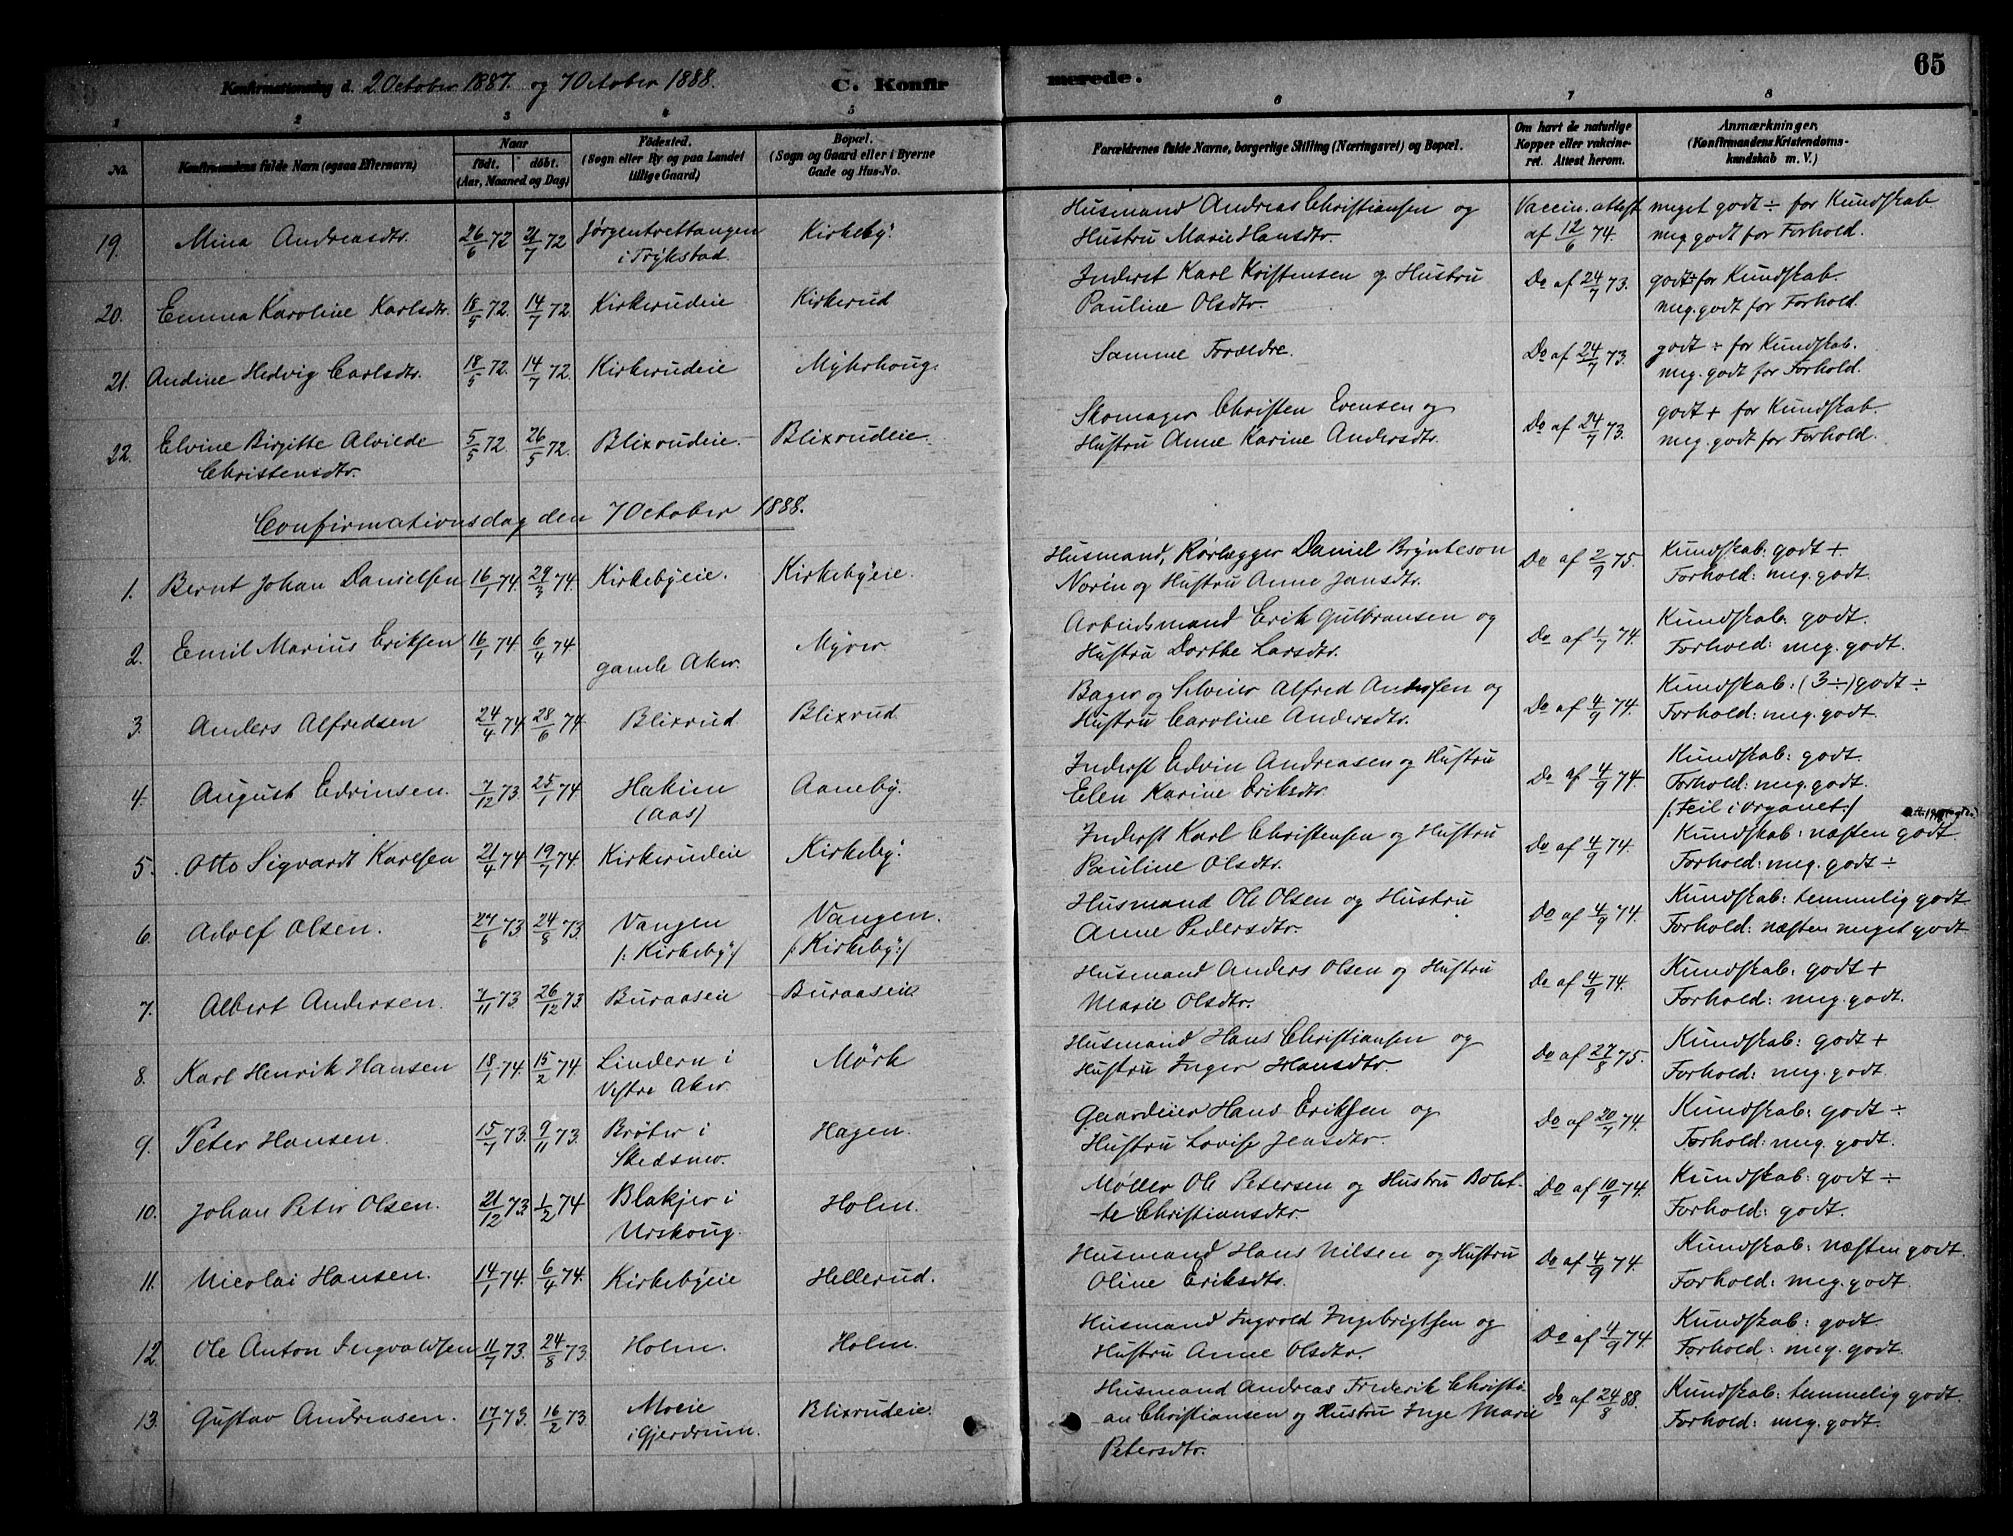 Konfirmationsdag d. 2 October 1887. og 7 October 1888. C. Konfirmerede. 65
1 2 3 4 5 6 7 8
No. Konfirmandens fulde Navn (ogsaa Efternavn) Naar født. døbt. (Aar, Maaned og Dag) Fødested. (Sogn eller By og paa Landet tillige Gaard) Bopæl. (Sogn og Gaard eller i Byerne Gade og Hus-No. Forældrenes fulde Navne, borgerlige Stilling (Næringsvei) og Bopæl. Om havt de naturlige Kopper eller vakcineret. Attest herom. Anmærkninger. (Konfirmandens Kristendomskundskab m. V.)
19. Mina Andreasdtr. 26/6 72 21/7 72 Jørgentrettangen i Trykstad. Kirkeby. Husmand Andreas Christiansen og Hustru Marie Hansdtr. Vaccin. attest af 12/6 74. meget godt ÷ for Kundskab meg. godt for Forhold.
20. Emma Karoline Karlsdtr. 18/5 72. 14/7 72. Kirkerudeie Kirkerud Inderst Karl Kristensen og Hustru Pauline Olsdtr. Do af 24/7 73. godt ÷ for Kundskab. meg. godt for Forhold.
21. Andine Hedvig Carlsdtr. 18/5 72. 14/7 72. Kirkerudeie Myhrhoug. Samme Forældre. Do af 24/7 73. godt ÷ for Kundskab. meg. godt for Forhold.
22. Elvine Birgitte Alvilde Christensdtr. 5/5 72. 26/5 72. Blixrudeie. Blixrudeie. Skomager Christen Evensen og Hustru Anne Karine Andersdtr. Do af 24/7 73. godt + for Kundskab. meg. godt for Forhold.
Confirmationsdag den 7 October 1888.
1. Bernt Johan Danielsen 16/1 74. 29/3 74. Kirkebyeie. Kirkebyeie. Husmand, Rørlægger Daniel Brynteson Norin og Hustru Anne Jansdtr. Do af 2/9 75. Kundskab: godt + Forhold: meg. godt.
2. Emil Marius Eriksen 16/1 74 6/4 74 gamle Aker. Myrer Arbeidsmand Erik Gulbransen og Hustru Dorthe Larsdtr. Do af 1/7 74. Kundskab: godt. Forhold: meg. godt.
3. Anders Alfredsen 24/4 74. 28/6 74. Blixrud Blixrud Bager og Selveier Alfred Andersen og Hustru Caroline Andersdtr. Do af 4/9 74. Kundskab: (3÷) godt ÷ Forhold: meg. godt.
4. August Edvinsen. 7/12 73. 25/1 74. Hakim (Aas) Aaneby. Inderst Edvin Andreasen og Hustru Elen Karine Eriksdtr. Do af 4/9 74. Kundskab: godt. Forhold: meg. godt. /: Feil i Organet :/
5. Otto Sigvardt Karlsen 21/4 74 19/7 74. Kirkerudeie Kirkeby. Inderst Karl Christensen og Hustru Pauline Olsdtr. Do af 4/9 74. Kundskab: næsten godt. Forhold: meg. godt ÷
6. Adolf Olsen. 27/6 73 24/8 73. Vangen /: Kirkeby :/ Vangen. /: Kirkeby :/ Husmand Ole Olsen og Hustru Anne Pedersdtr. Do af 4/9 74. Kundskab: temmelig godt Forhold: næsten meget godt.
7. Albert Andersen. 7/11 73 26/12 73. Buraaseie Buraaseie Husmand Anders Olsen og Hustru Marie Olsdtr. Do af 4/9 74. Kundskab: godt + Forhold: meg. godt.
8. Karl Henrik Hansen 18/1 74. 15/2 74. Lindern i Vestre Aker. Mørk Husmand Hans Christiansen og Hustru Inger Hansdtr. Do af 27/8 75. Kundskab: godt + Forhold: meg. godt.
9. Peter Hansen. 15/7 73. 9/11 73. Brøter i Skedsmo. Hagen. Gaardeier Hans Eriksen og Hustru Lovise Jensdtr. Do af 20/7 74. Kundskab: godt ÷ Forhold: meg. godt.
10. Johan Peter Olsen. 21/12 73. 1/2 74 Blakjer i Urskoug. Holm. Møller Ole Petersen og Hustru Bolette Christiansdtr. Do af 10/9 74. Kundskab: godt ÷ Forhold: godt.
11. Nicolai Hansen. 14/1 74. 6/4 74. Kirkebyeie Hellerud. Husmand Hans Nilsen og Hustru Oline Eriksdtr. Do af 4/9 74. Kundskab: næsten godt. Forhold: meg. godt.
12. Ole Anton Ingvaldsen 11/7 73. 24/8 73. Holm. Holm. Husmand Ingvold Ingebrigtsen og Hustru Anne Olsdtr. Do af 4/9 74. Kundskab: godt. Forhold: meg. godt.
13. Gustav Andreasen. 17/1 73. 16/2 73. Moeie i Gjerdrum. Blixrudeie. Husmand Andreas Frederik Christian Christiansen og Hustru Inge Marie Petersdtr. Do af 24/8 88. Kundskab: temmelig godt Forhold: meg. godt.